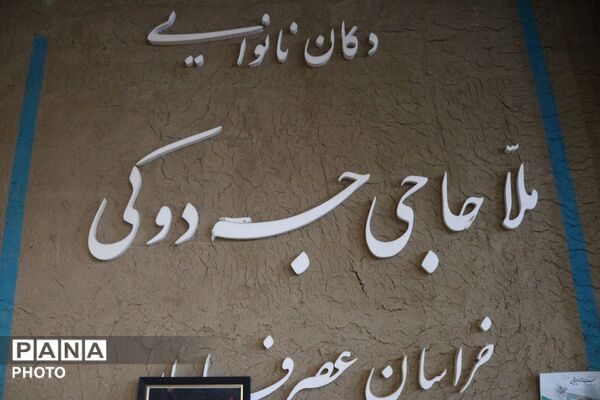 دکان نانوایی
ملّا حاجی جــدوکی
خراسان عصر
PANA
PHOTO